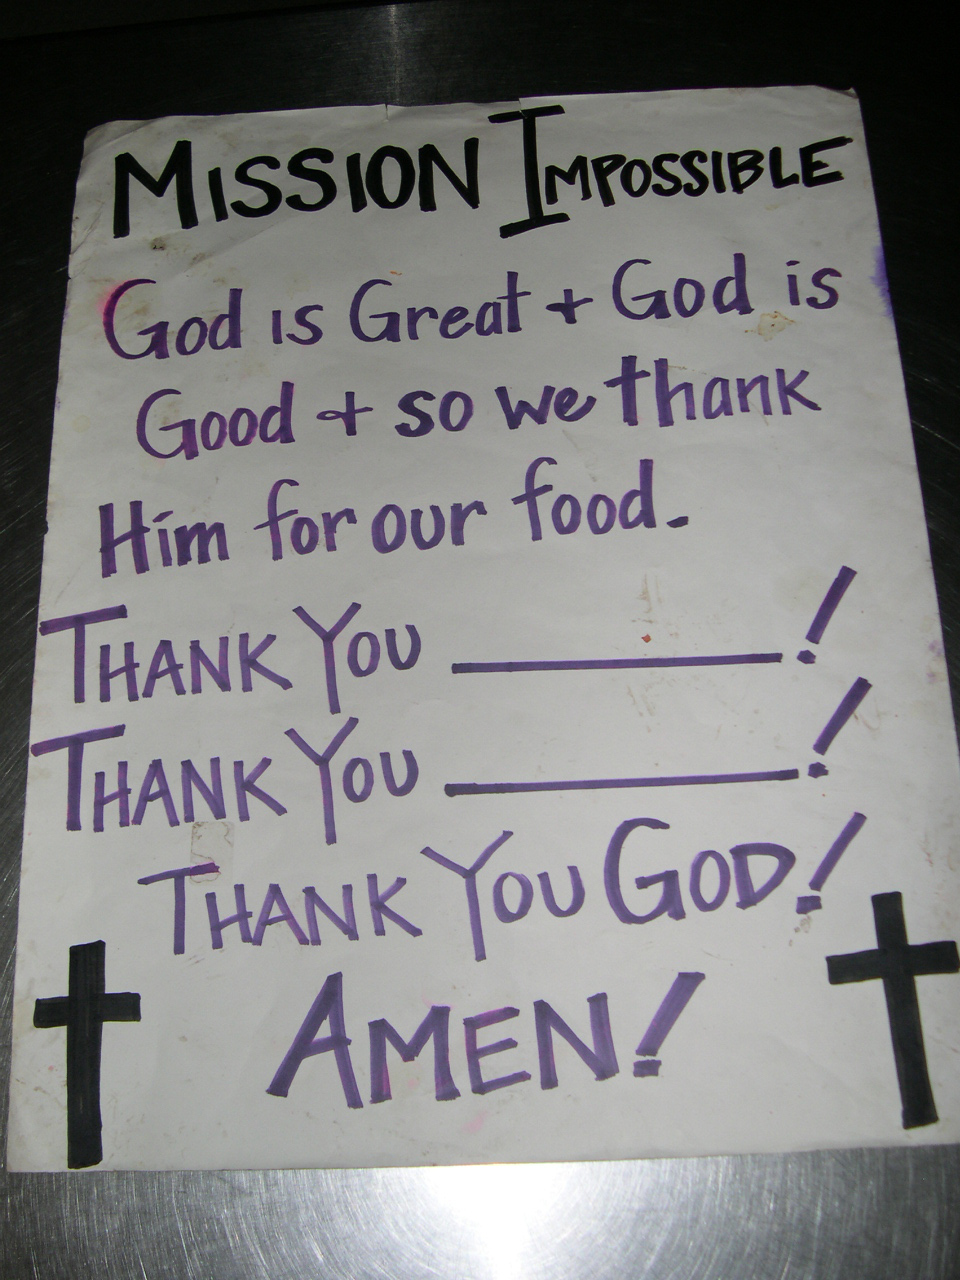 MISSION IMPOSSIBLE
God is Great + God is
Good + so we thank
Him for our food.
THANK YOU __________!
THANK YOU __________!
THANK YOU GOD!
AMEN!